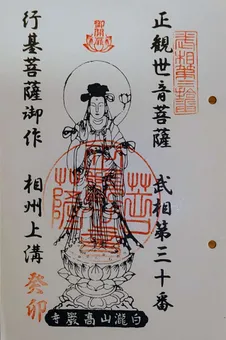 正観世音菩薩
武相第三十番
行基菩薩御作
相州上溝
癸卯
白瀧山高巌寺